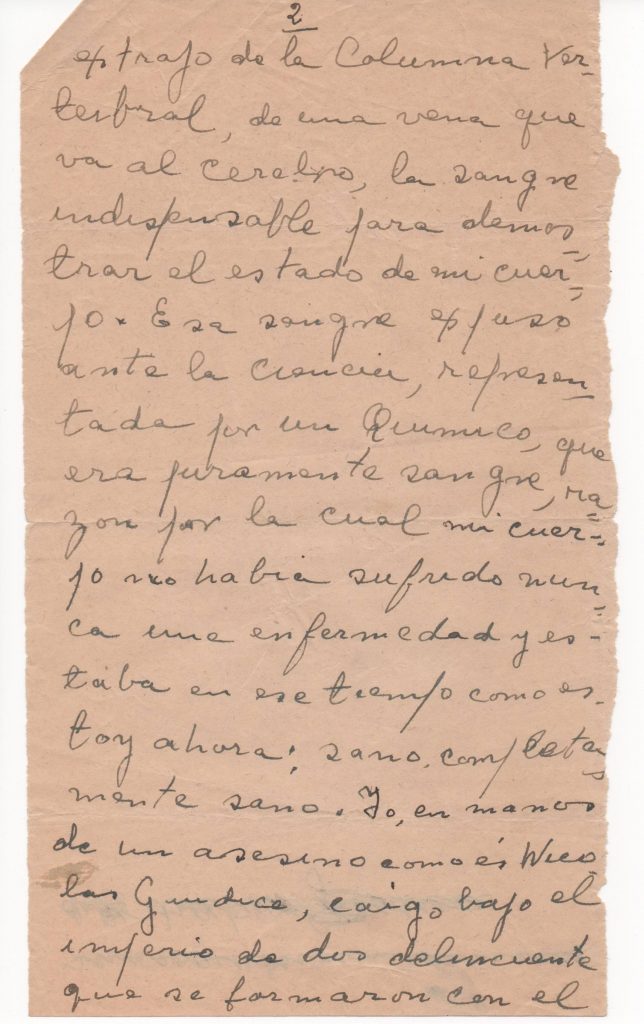 2
extrajo de la Columna Ver-
tesbral, de una vena que
va al cerebro, la sangre
indispensable para demos=
trar el estado de mi cuer=
po. Esa sangre expuso
ante la Ciencia, represen=
tada por un Quimico, que
era puramente sangre, ra=
zon por la cual mi cuer=
po no habia sufrido nun=
ca una enfermedad y es-
taba en ese tiempo como es-
toy ahora; sano, completa=
mente sano. Yo, en manos
de un asesino como és Nico
las Giudice, caigo bajo el
imperio de dos delincuente
que se formaron con el